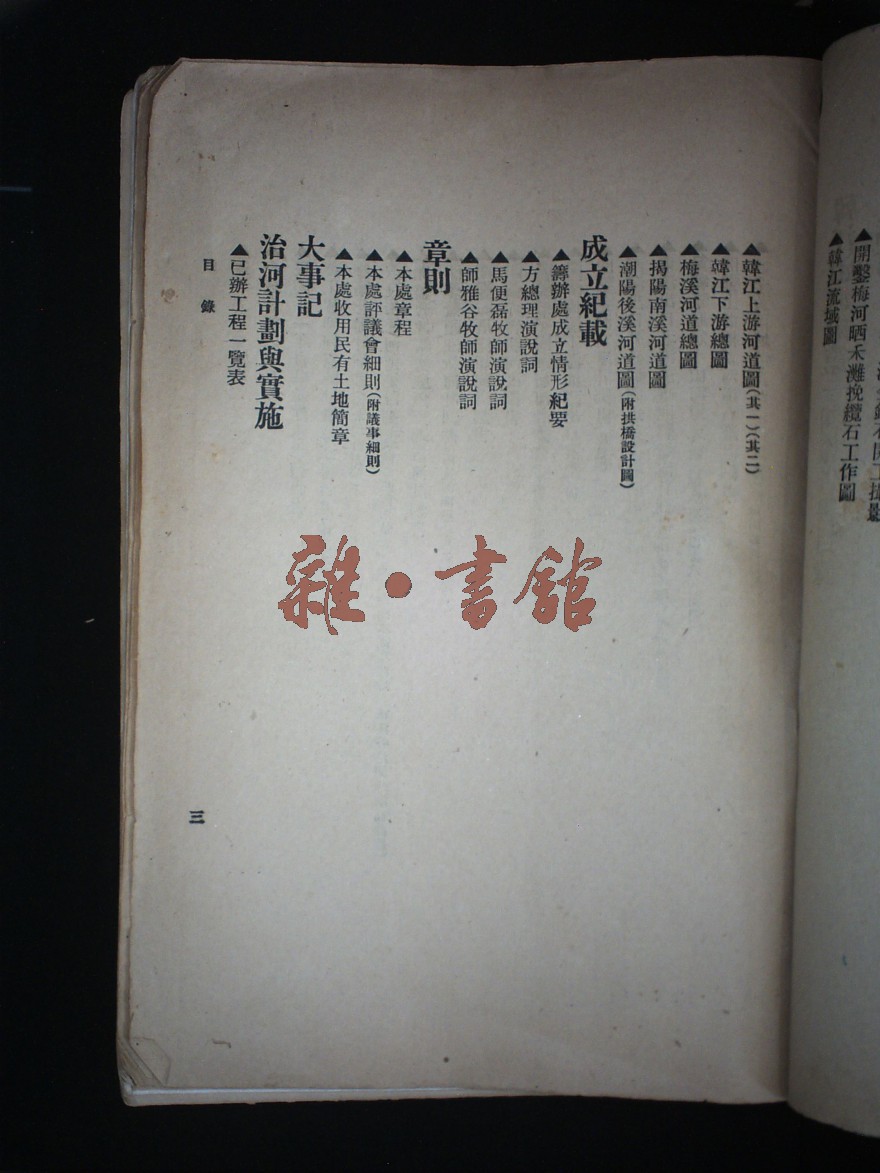 開鑿梅河晒禾灘挽纜石工作圖
▲韓江流域圖
▲韓江上游河道圖(其一)(其二)
▲韓江下游總圖
▲梅溪河道總圖
▲揭陽南溪河道圖
▲潮陽後溪河道圖(附拱橋設計圖)
成立紀載
▲籌辦處成立情形紀要
▲方總理演說詞
▲馬便磊牧師演說詞
▲師雅谷牧師演說詞
章則
▲本處章程
▲本處評議會細則(附議事細則)
▲本處收用民有土地簡章
大事記
治河計劃與實施
▲已辦工程一覽表
目錄
三
雜·書館